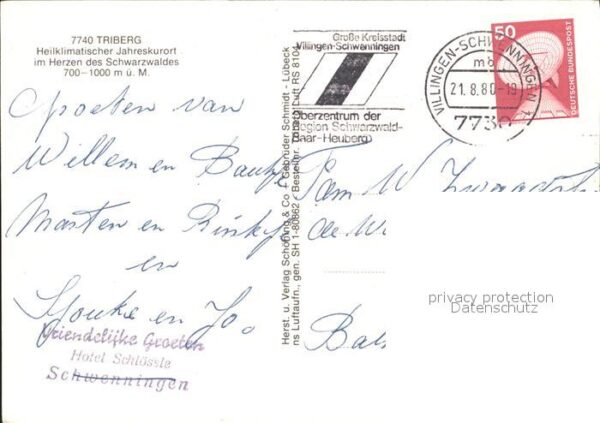 7740 TRIBERG
Heilklimatischer Jahreskurort
im Herzen des Schwarzwaldes
700–1000 m ü. M.
Groeten van
Willem en
Marten en
en
Sjouke en Jo.
Vriendelijke Groeten
Hotel Schlössle
Schwenningen
Herst. u. Verlag Schöning & Co + Gebrüder Schmidt - Lübeck
ns Luftaufn., gen. SH 1-80862 • Bestellnr. Luft RS 8104
Große Kreisstadt
Villingen-Schwenningen
Oberzentrum der
Region Schwarzwald-
Baar-Heuberg
VILLINGEN-SCHWENNINGEN 1
mb
21.8.80-19
7730
50
DEUTSCHE BUNDESPOST
Fam W
de W
Bal
privacy protection
Datenschutz